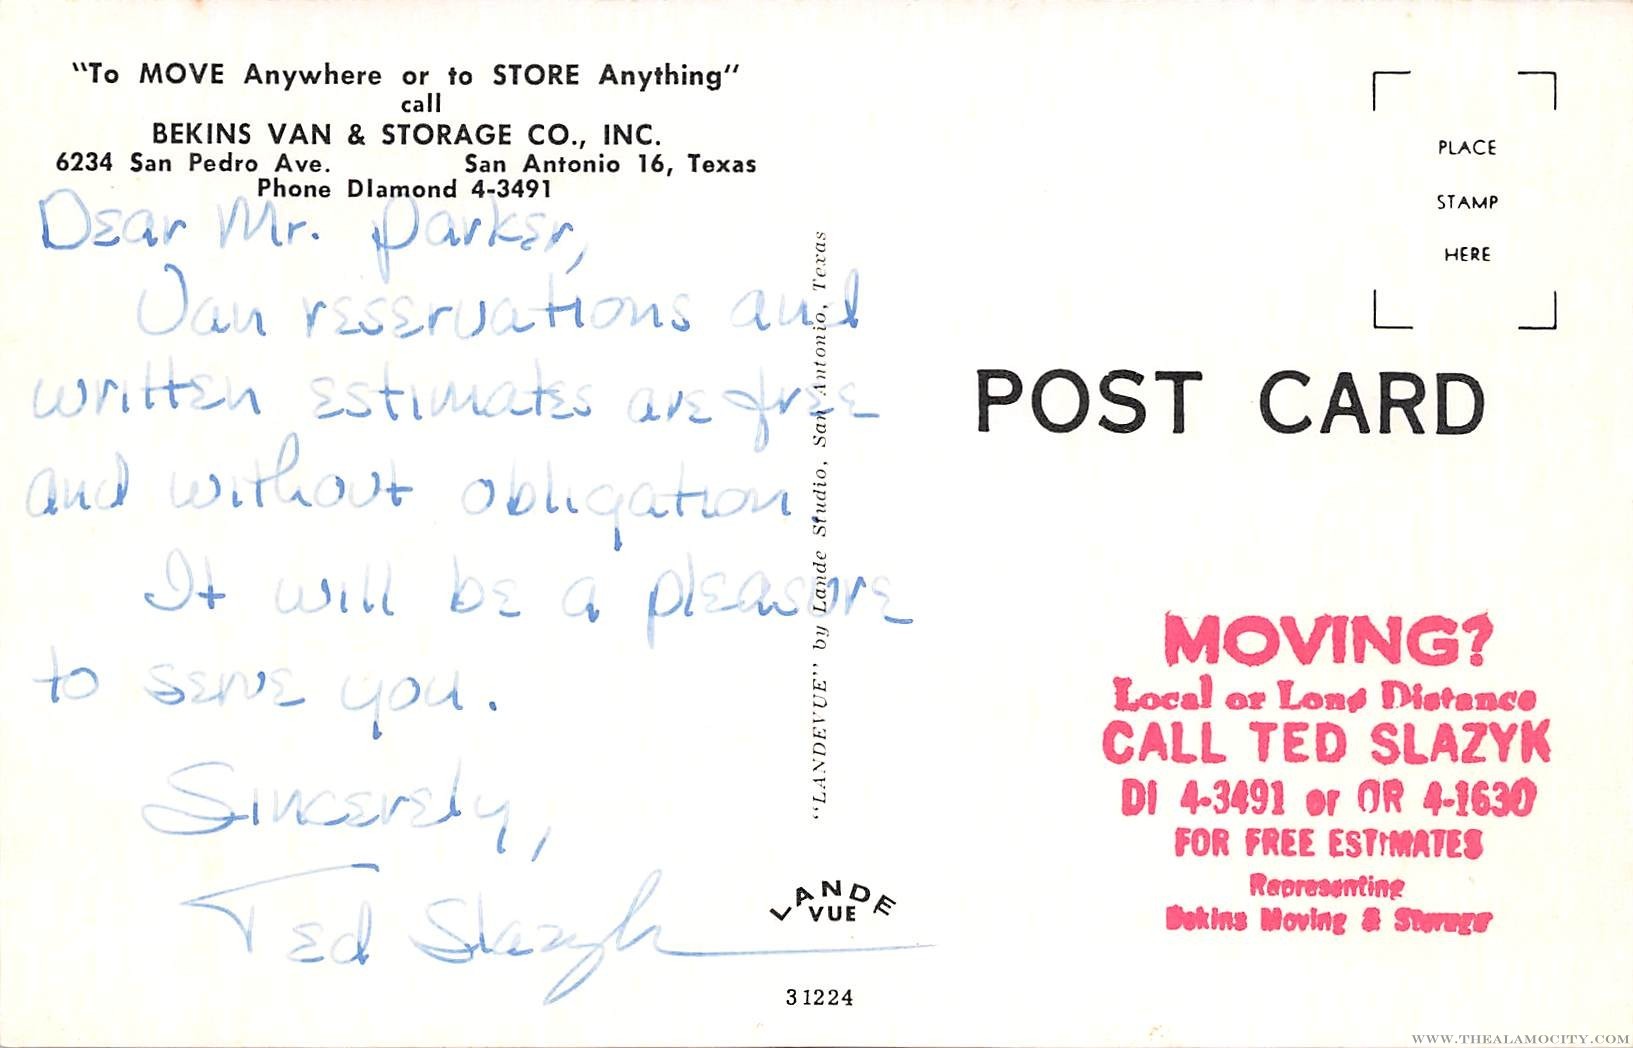 "To MOVE Anywhere or to STORE Anything"
call
BEKINS VAN & STORAGE CO., INC.
6234 San Pedro Ave. San Antonio 16, Texas
Phone DIamond 4-3491
Dear Mr. Parker,
Van reservations and
written estimates are free
and without obligation.
It will be a pleasure
to serve you.
Sincerely,
Ted Slazyk
"LANDEVUE" by Lande Studio, San Antonio, Texas
LANDE
VUE
31224
PLACE
STAMP
HERE
POST CARD
MOVING?
Local or Long Distance
CALL TED SLAZYK
DI 4-3491 or OR 4-1630
FOR FREE ESTIMATES
Representing
Bekins Moving & Storage
WWW.THEALAMOCITY.COM